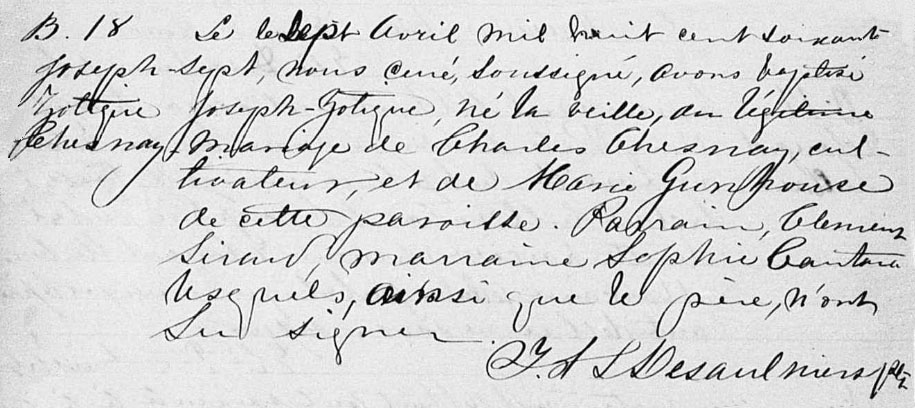 B. 18 Le sept Avril mil huit cent soixante
Joseph- sept, nous curé, soussigné, avons baptisé
Zotique Joseph-Zotique, né la veille, du légitime
Chesnay. mariage de Charles Chesnay, cul-
tivateur, et de Marie
de cette paroisse. Parrain, Clement
Siraud, marraine Sophie Cantara
lesquels, ainsi que le père, n'ont
su signer.
J. A L Desaulniers ptre